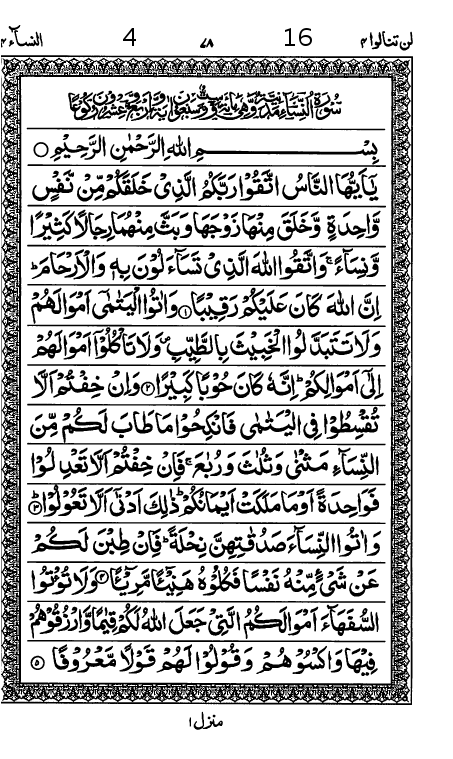 لن تنالوا ۴ 16 ۷۸ 4 النسآء ۴
سُوْرَةُ النِّسَآءِ مَدَنِيَّةٌ وَّهِيَ مِائَةٌ وَّسِتٌّ وَّسَبْعُوْنَ اٰيَةً وَّاَرْبَعٌ وَّعِشْرُوْنَ رُكُوْعًا
بِسْمِ اللّٰهِ الرَّحْمٰنِ الرَّحِيْمِ ○
يٰۤاَيُّهَا النَّاسُ اتَّقُوْا رَبَّكُمُ الَّذِيْ خَلَقَكُمْ مِّنْ نَّفْسٍ
وَّاحِدَةٍ وَّخَلَقَ مِنْهَا زَوْجَهَا وَبَثَّ مِنْهُمَا رِجَالًا كَثِيْرًا
وَّنِسَآءً ۚ وَاتَّقُوا اللّٰهَ الَّذِيْ تَسَآءَلُوْنَ بِهٖ وَالْاَرْحَامَ ؕ
اِنَّ اللّٰهَ كَانَ عَلَيْكُمْ رَقِيْبًا ۱ وَاٰتُوا الْيَتٰمٰۤى اَمْوَالَهُمْ
وَلَا تَتَبَدَّلُوا الْخَبِيْثَ بِالطَّيِّبِ ۪ وَلَا تَاْكُلُوْۤا اَمْوَالَهُمْ
اِلٰۤى اَمْوَالِكُمْ ؕ اِنَّهٗ كَانَ حُوْبًا كَبِيْرًا ۲ وَاِنْ خِفْتُمْ اَلَّا
تُقْسِطُوْا فِي الْيَتٰمٰى فَانْكِحُوْا مَا طَابَ لَكُمْ مِّنَ
النِّسَآءِ مَثْنٰى وَثُلٰثَ وَرُبٰعَ ۚ فَاِنْ خِفْتُمْ اَلَّا تَعْدِلُوْا
فَوَاحِدَةً اَوْ مَا مَلَكَتْ اَيْمَانُكُمْ ؕ ذٰلِكَ اَدْنٰۤى اَلَّا تَعُوْلُوْا ؕ ۳
وَاٰتُوا النِّسَآءَ صَدُقٰتِهِنَّ نِحْلَةً ؕ فَاِنْ طِبْنَ لَكُمْ
عَنْ شَيْءٍ مِّنْهُ نَفْسًا فَكُلُوْهُ هَنِيْٓئًا مَّرِيْٓئًا ۴ وَلَا تُؤْتُوا
السُّفَهَآءَ اَمْوَالَكُمُ الَّتِيْ جَعَلَ اللّٰهُ لَكُمْ قِيٰمًا وَّارْزُقُوْهُمْ
فِيْهَا وَاكْسُوْهُمْ وَقُوْلُوْا لَهُمْ قَوْلًا مَّعْرُوْفًا ۵
منزل ۱